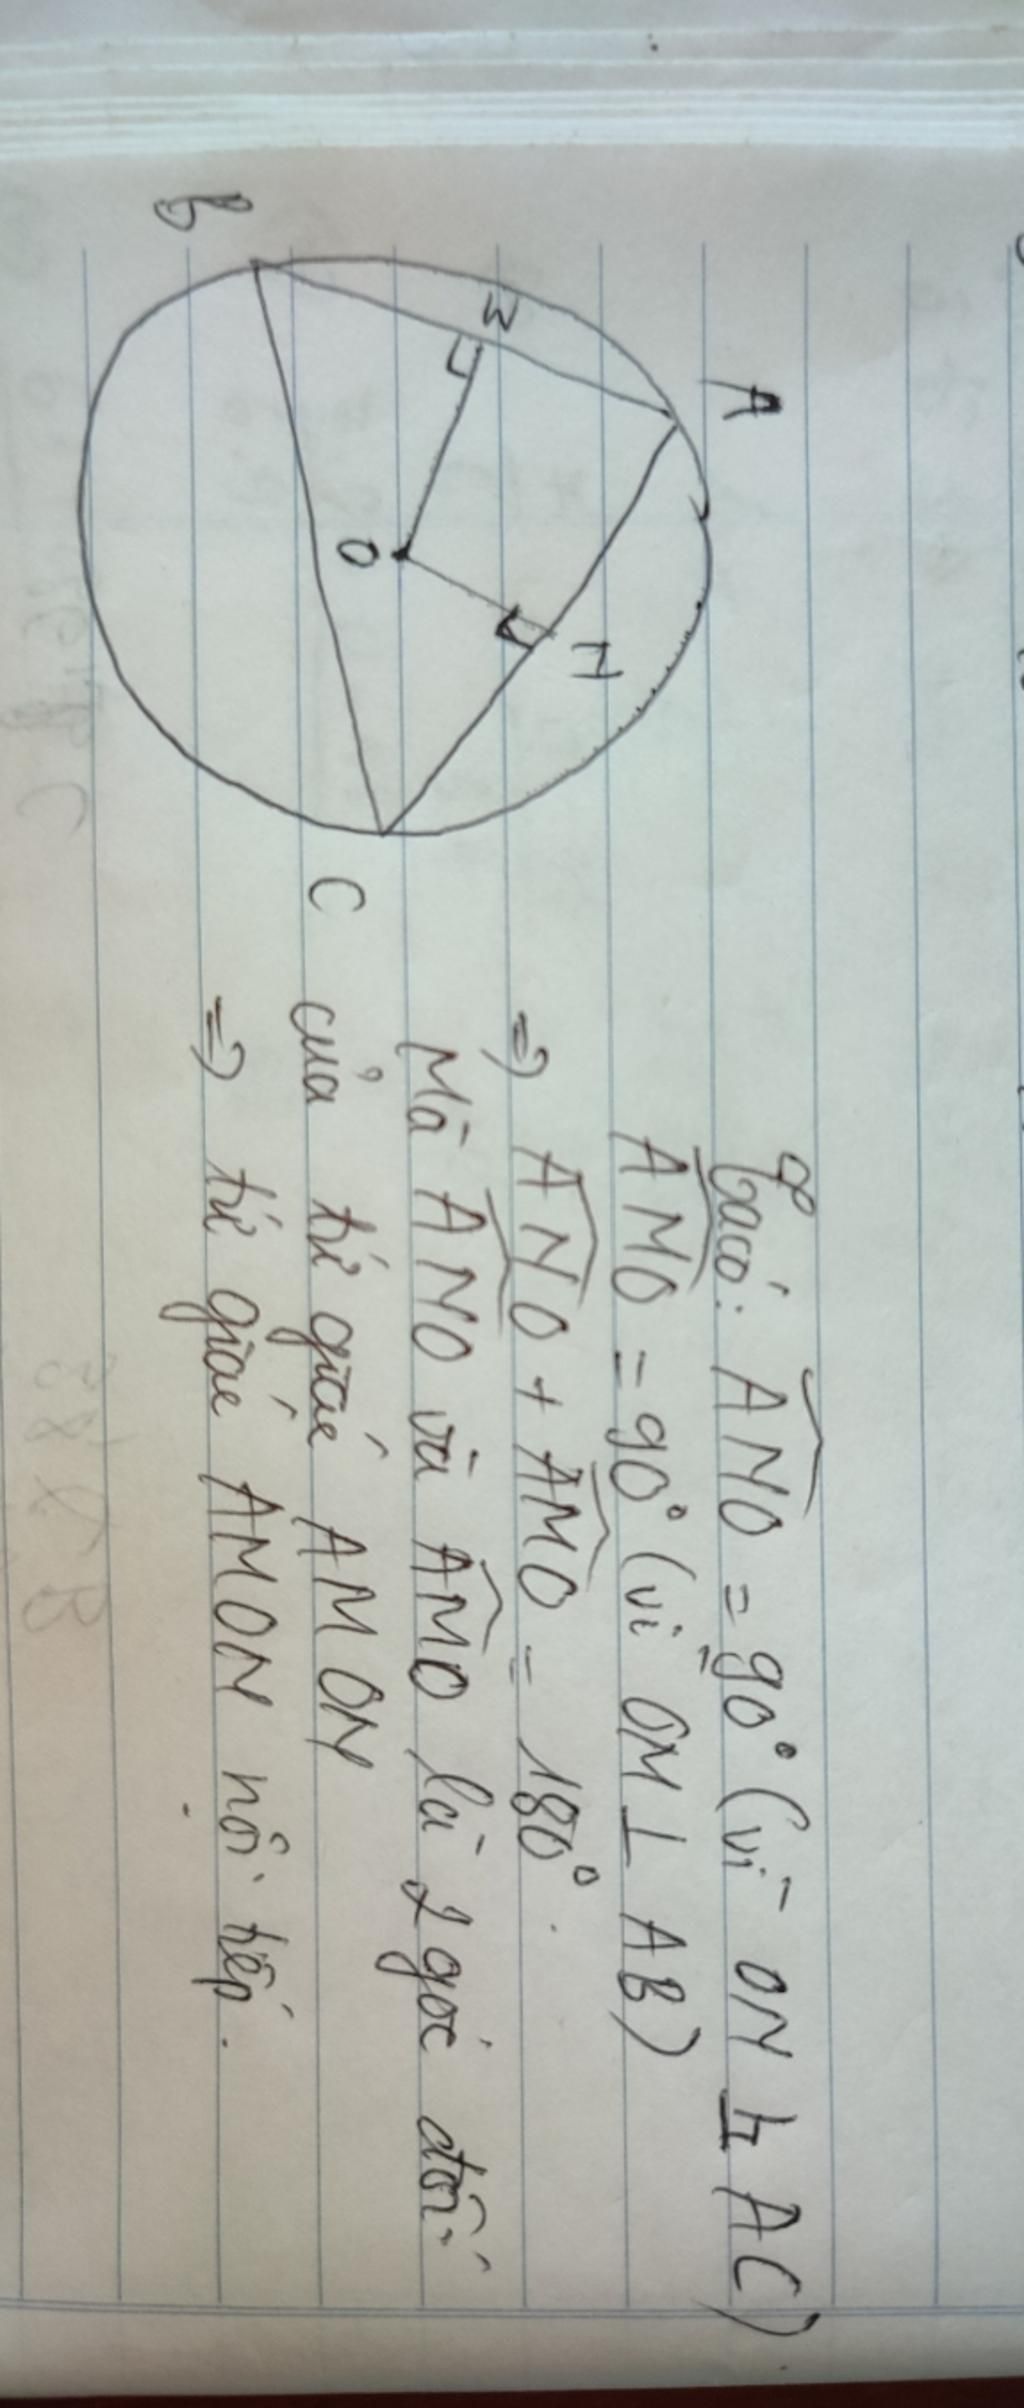 A
B
M
N
O
C
Ta có: ANO = 90° (vì ON ⊥ AC)
AMO = 90° (vì OM ⊥ AB)
=> ANO + AMO = 180°.
Mà ANO và AMO là 2 góc đối
của tứ giác AMON
=> tứ giác AMON nội tiếp.